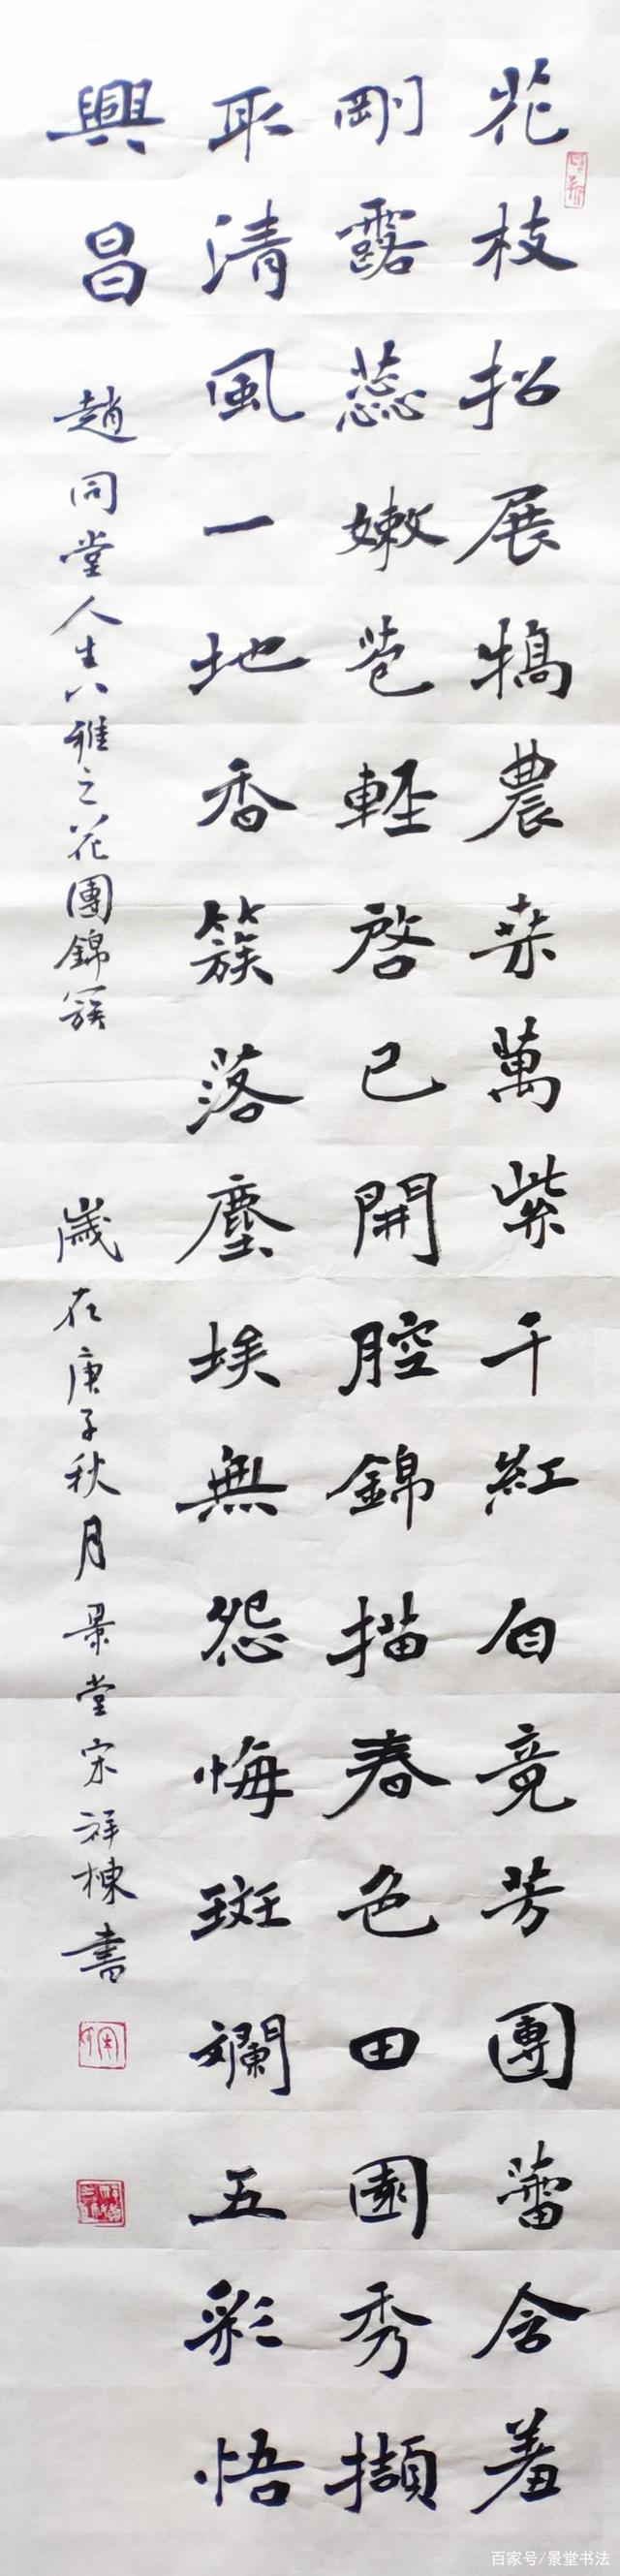 花枝招展犒農桒萬紫千紅自竟芳團蕾含羞
剛露蕊嫩苞輕啓已開腔錦描春色田園秀擷
取清風一地香簇落塵埃無怨悔斑斕五彩悟
興昌 趙同堂人生八雅之花團錦簇 歲在庚子秋月景堂宋祥棟書
百家号/景堂书法